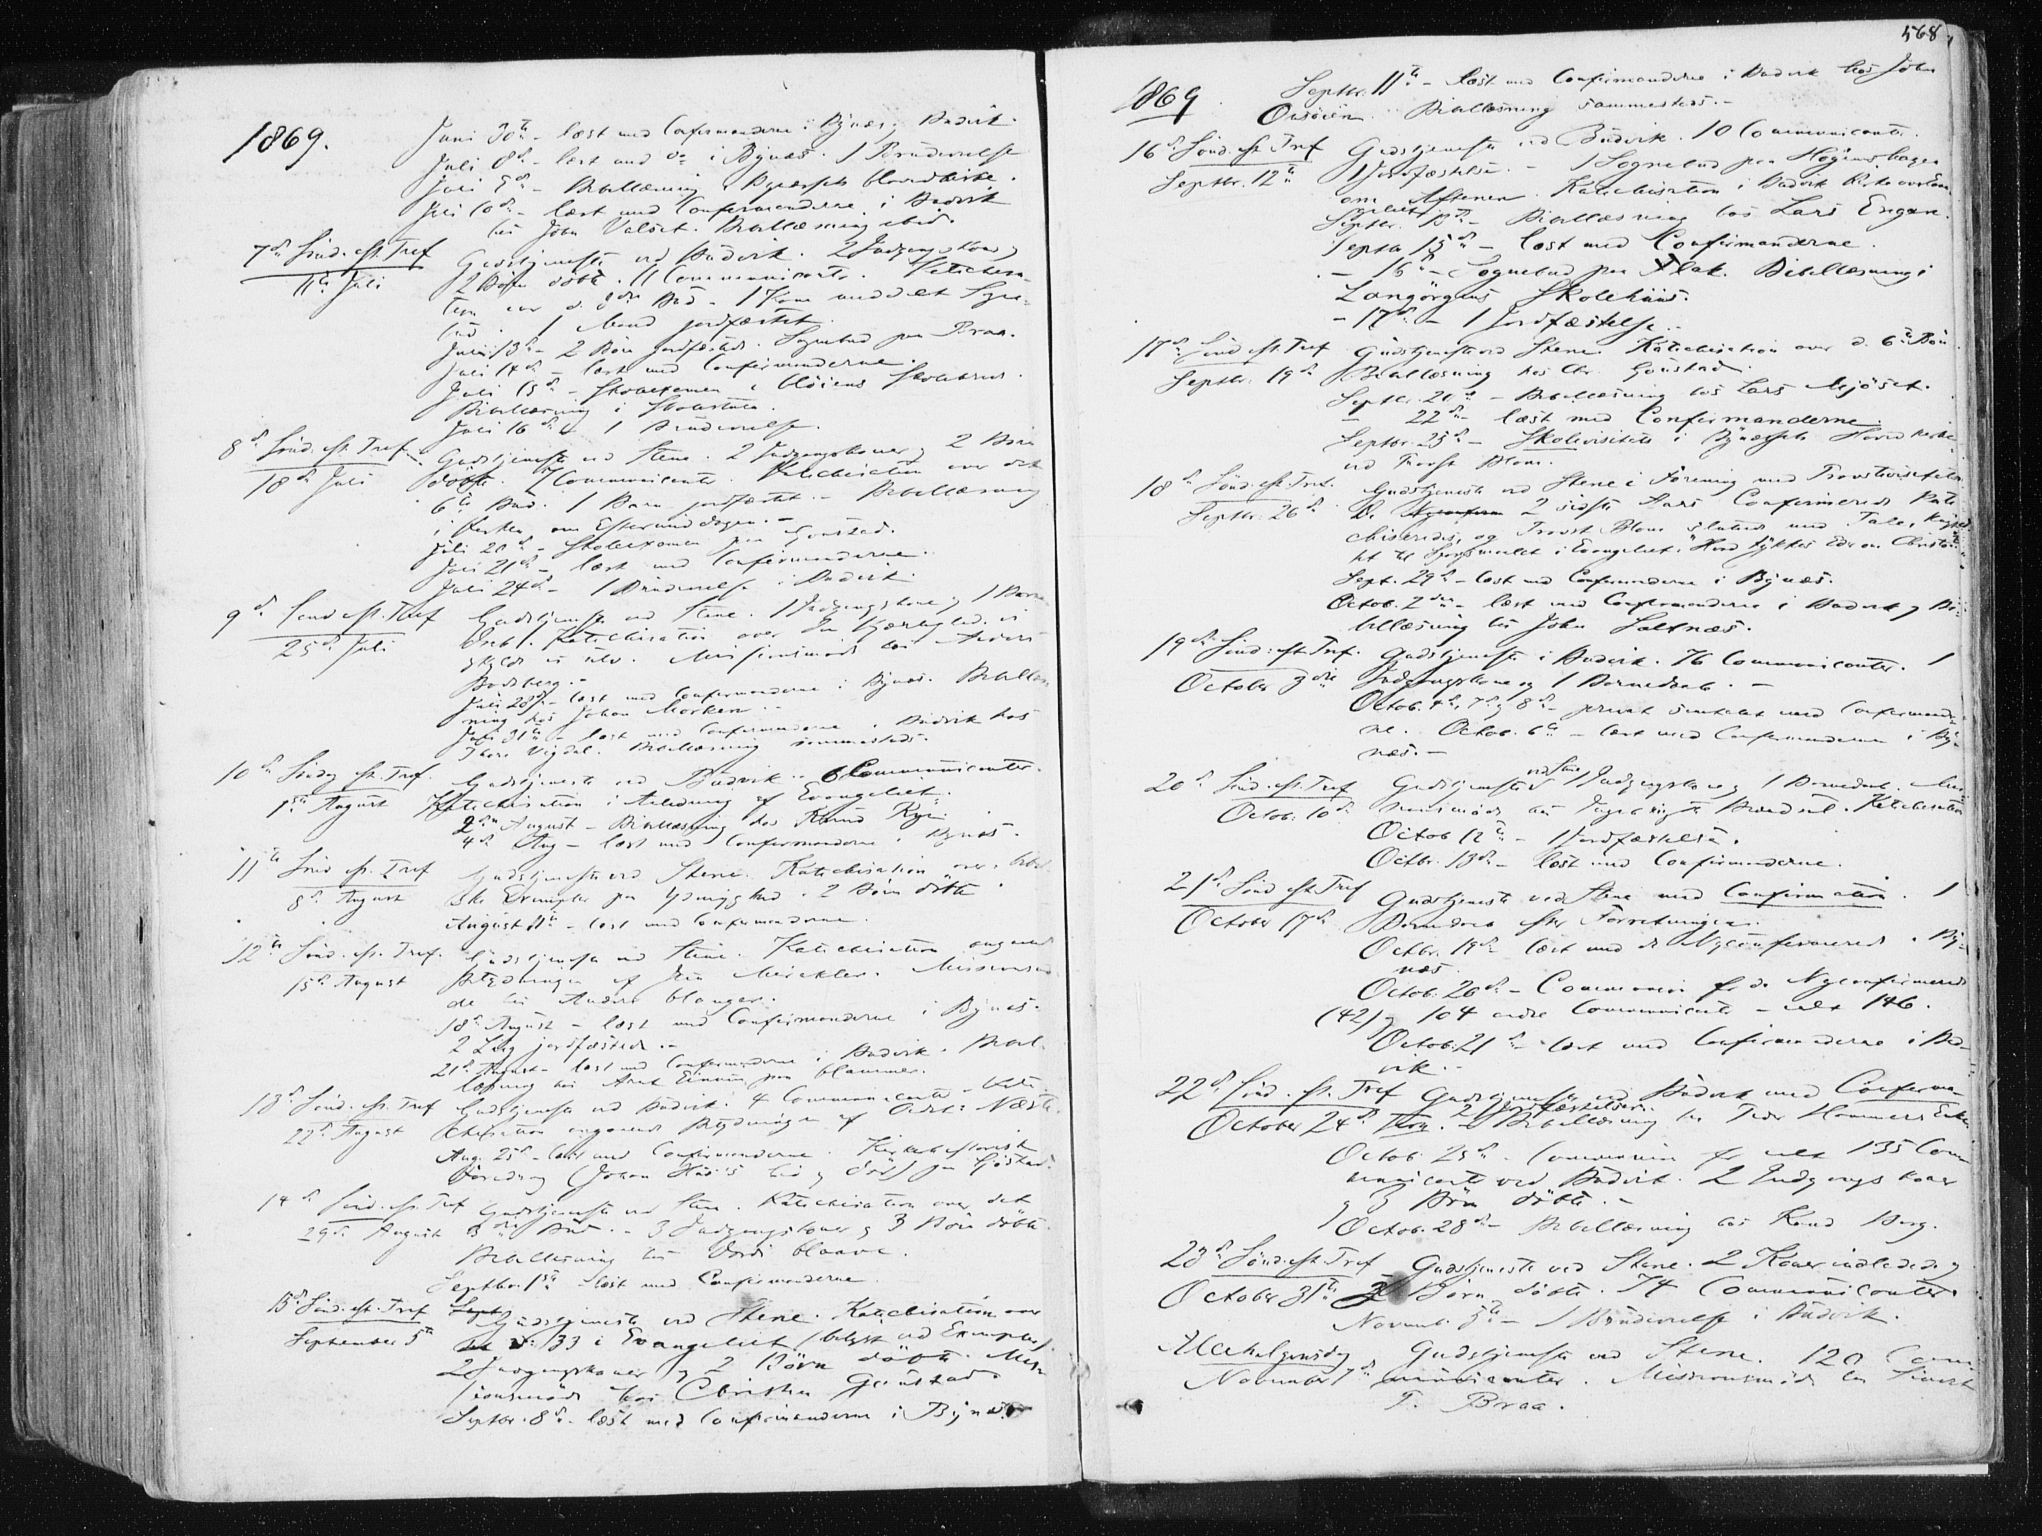 1869.
Juni 30te – læst med Confirmanderne i Bynæs, Budvik.
Juli 8de – læst med do i Bynæs. 1 Brudevielse
Juli 9de – Bibellæsning i Bynæssets Hovedkirke.
Juli 10de – læst med Confirmanderne i Budvik
hos John Valset. Bibellæsning ibid.
7de Sönd. eft. Tref
11te Juli
Gudstjeneste ved Budvik. 2 Indgangskoner,
2 Börn döbte. 11 Communicanter. Katechisa-
tion over d. 8de Bud. 1 Kone meddelt Sogne-
bud. 1 Mand jordfæstet.
Juli 13de – 2 Börn jordfæstede. Sognebud paa Braa.
Juli 14de – læst med Confirmanderne.
Juli 15de – Skoleexamen i
Bibellæsning i Skolestuen.
Juli 16de – 1 Brudevielse.
8de Sönd. eft. Tref.
18de Juli
Gudstjeneste ved Stene. 2 Indgangskoner, 2 Börn
döbte. 7 Communicanter. Katechisation over det
6te Bud. 1 Barn jordfæstet. – Bibellæsning
i Kirken om Eftermiddagen. –
Juli 20de – Skoleexamen paa Gonstad.
Juli 21de – læst med Confirmanderne.
Juli 24de – 1 Brudevielse i Budvik.
9de Sönd. eft. Tref
25de Juli
Gudstjeneste ved Stene. 1 Indgangskone, 1 Barn
döbt. Katechisation over Den Kjærlighed, vi
skylde os selv. Missionsmöde hos Anders
Juli 28de – læst med Confirmanderne i Bynæs. Bibellæs-
ning hos Johan Morken. –
Juli 31te – læst med Confirmanderne i Budvik hos
Thore Vigdal. Bibellæsning sammesteds.
10de Söndag eft. Tref.
1ste August
Gudstjeneste ved Budvik. 6 Communicanter.
Katechisation i Anledning af Evangeliet.
2den August – Bibellæsning hos Knud
4de Aug – læst med Confirmanderne i Bynæs.
11te Sönd. eft. Tref
8de August
Gudstjeneste ved Stene. Katechisation over bibel-
ske Exempler paa Ydmyghed. 2 Börn döbte.
August 11te – læst med Confirmanderne.
12te Sönd. eft. Tref.
15de August
Gudstjeneste ved Stene. Katechisation angaaend
Betydningen af Jesu Mirakler. Missionsmö-
de hos Anders
18de August – læst med Confirmanderne i Bynæs.
2 Lig jordfæstede. –
21de August – læst med Confirmanderne i Budvik. Bibel-
læsning hos
13de Sönd. eft. Tref
22de August
Gudstjeneste ved Budvik. 4 Communicanter. Kate-
chisation angaaende Betydningen af Ordet: Næste.
Aug. 25de – læst med Confirmanderne. Kirkehistorisk
Foredrag (Johan Hus's Liv og Död) paa
14de Sönd. eft. Tref
29de August
Gudstjeneste ved Stene. Katechisation over det
Bud. – 3 Indgangskoner, 3 Börn döbte.
Bibellæsning hos
Septbr. 1ste læst med Confirmanderne
15de Sönd. eft. Tref
September 5te
Gudstjeneste ved Stene. Katechisation over
V. 33 i Evangeliet (belyst ved Exempler).
2 Indgangskoner og 2 Börn döbte. Mis-
sionsmöde hos Christen Gonstad.
Septbr. 8de – læst med Confirmanderne i Bynæs.
568
1869
Septbr. 11te – læst med Confirmanderne i Budvik hos John
Onsöien. Bibellæsning sammesteds. –
16de Sönd. eft. Tref
Septbr. 12te
Gudstjeneste ved Budvik. 10 Communicanter.
1 Jordfæstelse. – 1 Sognebud paa
om Aftenen. Katechisation i Budvik Kirke over Evan-
geliet
Septbr. – Bibellæsning hos Lars Engan.
Septbr. 15de – læst med Confirmanderne.
– 16de – Sognebud paa Flak. Bibellæsning i
Langörgens Skolehuus.
– 17de – 1 Jordfæstelse. –
17de Sönd. eft. Tref
Septbr. 19de
Gudstjeneste ved Stene. Katechisation over d. 6te Bön.
Bibellæsning hos Chr. Gonstad.
Septbr. 21de – Bibellæsning hos Lars Mjöset.
– 22de – læst med Confirmanderne.
Septbr. 25de – Skolevisitats i Bynæssets Hovedkirke
ved Provst Blom.
18de Sönd. eft. Tref.
Septbr. 26de
Gudstjeneste ved Stene i Forening med Provstevisitats
De 2 sidste Aars Confirmerede Kate-
chiseredes, og Provst Blom sluttede med Tale, knyt-
tet til Spörgsmaalet i Evangeliet: "Hvad tykkes Eder om Christo"
Sept. 29de – læst med Confirmanderne i Bynæs.
Octob. 2den – læst med Confirmanderne i Budvik og Bi-
bellæsning hos John Saltnæs.
19de Sönd. eft. Tref.
October 3die
Gudstjeneste i Budvik. 76 Communicanter. 1
Indgangskone og 1 Barnedaab. –
Octob. 4de, 7de, 8de – privat Samtale med Confirmander-
ne. Octob. 6te – læst med Confirmanderne i By-
næs. –
20de Sönd. eft. Tref
Octob. 10de
Gudstjeneste ved Stene 1 Indgangskone, 1 Barnedaab. Mis-
sionsmöde hos Katechisation
Octob 12te – 1 Jordfæstelse.
Octbr. 13de – læst med Confirmanderne.
21de Sönd. eft. Tref
October 17de
Gudstjeneste ved Stene med Confirmation. 1
Barnedaab efter Forretningen.
Octbr. 19de læst med de Nyconfirmerede i By-
næs.
Octob. 20de – Communion for de Nyconfirmerede
(42) og 104 andre Communicanter – ialt 146.
Octob. 21de – læst med Confirmanderne i Bud-
vik. –
22de Sönd. eft. Tref
October 24de
Gudstjeneste ved Budvik med Confirma-
tion. 2 Jordfæstelser. Bibellæsning hos Peder Hammers Enke.
Octob. 25de. Communion for ialt 135 Com-
municanter ved Budvik. 2 Indgangskoner
og 3 Börn döbte. –
Octob. 28de – Bibellæsning hos Knud Berg.
23de Sönd. eft. Tref
October 31te
Gudstjeneste ved Stene. 2 Koner indledede og
3 Börn döbte. 74 Communicanter.
Novemb. 5te – 1 Brudevielse i Budvik.
Allehelgensdag
November 7de
Gudstjeneste ved Stene. 120 Com-
municanter. Missionsmöde hos Sivert
T. Braa.